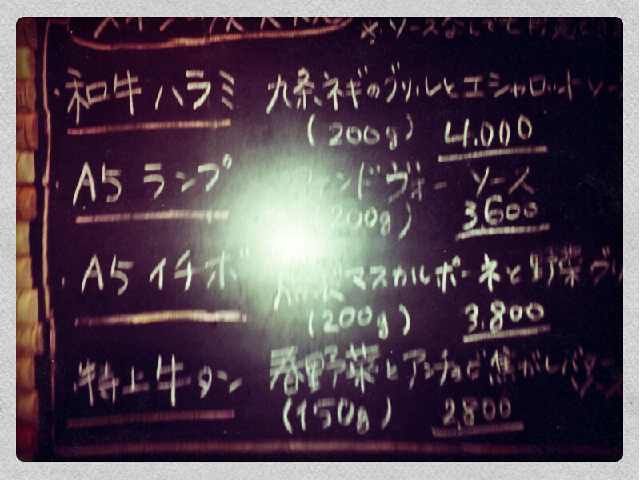 和牛ハラミ 九条ネギのグリルとエシャロット
(200g) 4.000
A5 ランプ フォンドヴォー ソース
(200g) 3600
A5 イチボ マスカルポーネと野菜グリ
(200g) 3.800
特上牛タン 春野菜とアンチョビ焦がしバター
(150g) 2,800